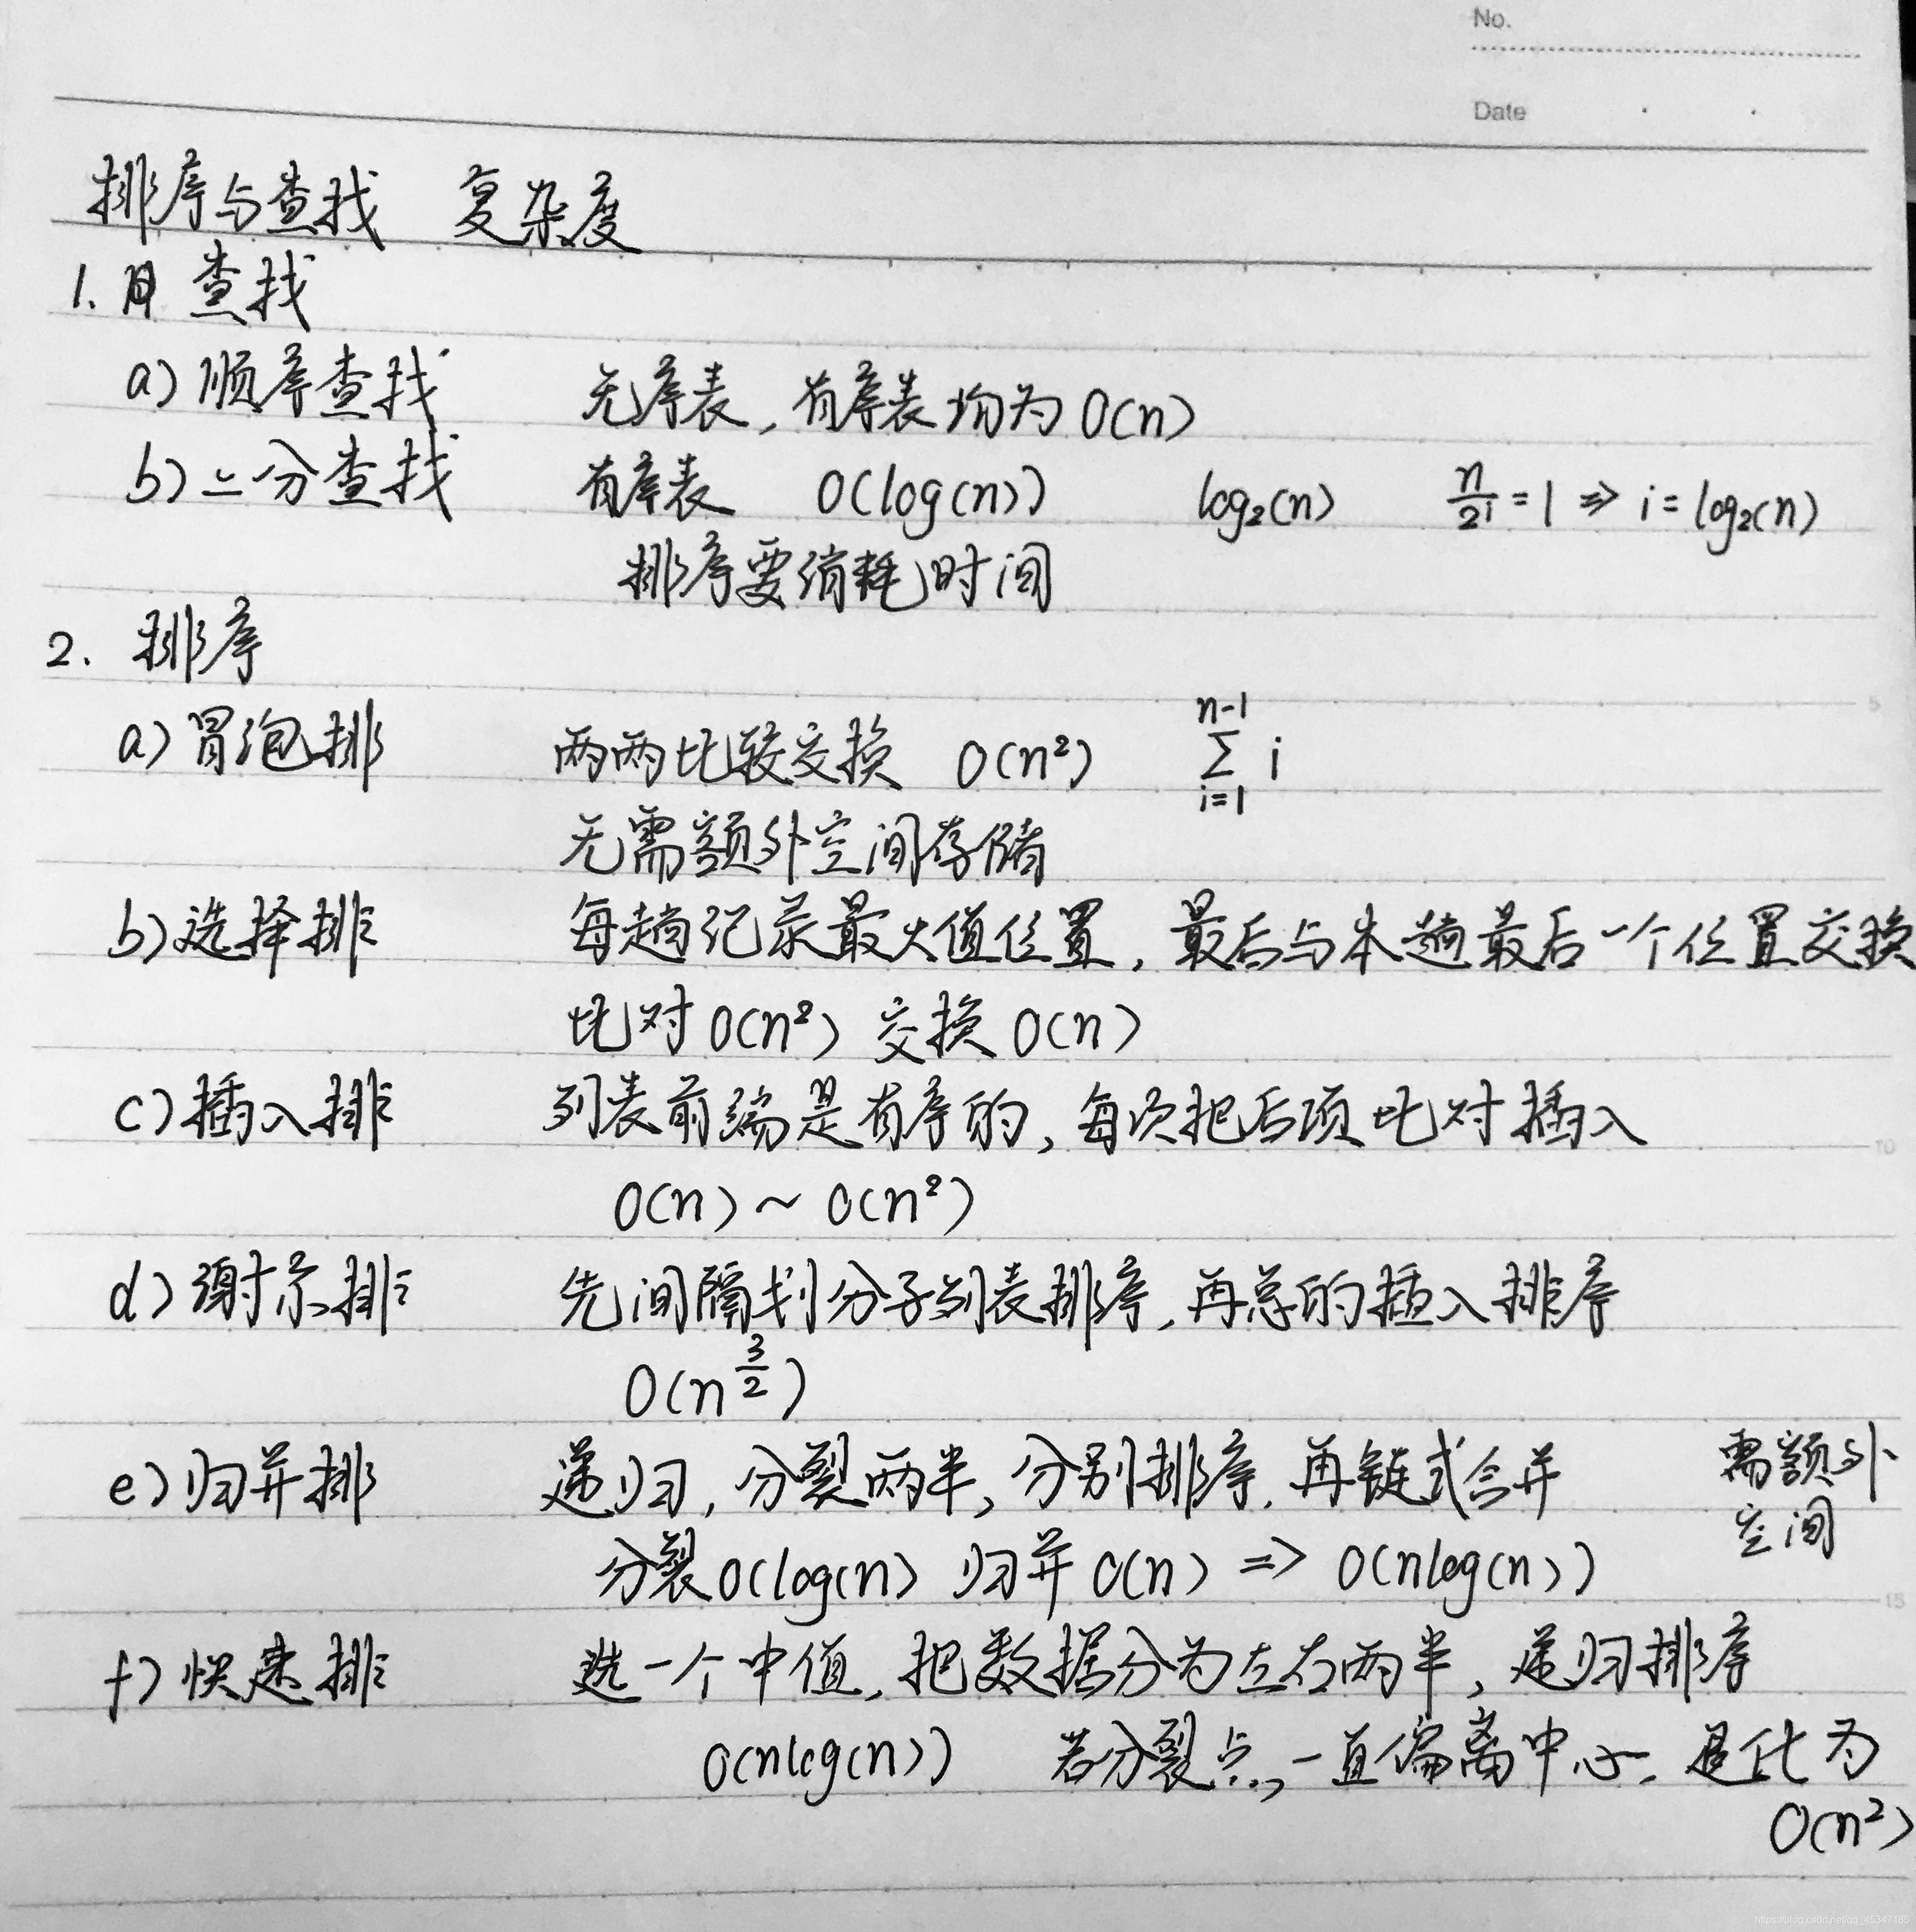 No.
Date
排序与查找 复杂度
1. 查找
a) 顺序查找 无序表, 有序表均为 O(n)
b) 二分查找 有序表 O(log(n)) log₂(n) n/2ⁱ = 1 => i = log₂(n)
排序要消耗时间
2. 排序
5
a) 冒泡排 两两比较交换 O(n²) ∑_{i=1}^{n-1} i
无需额外空间存储
b) 选择排 每趟记录最大值位置, 最后与本趟最后一个位置交换
比对 O(n²) 交换 O(n)
c) 插入排 列表前端是有序的, 每次把后项比对插入
10
O(n) ~ O(n²)
d) 谢尔排 先间隔划分子列表排序, 再总的插入排序
O(n^{3/2})
e) 归并排 递归, 分裂两半, 分别排序, 再链式合并 需额外空间
分裂 O(log(n) 归并 O(n) => O(nlog(n))
15
f) 快速排 选一个中值, 把数据分为左右两半, 递归排序
O(nlog(n)) 若分裂点, 一直偏离中心, 退化为
O(n²)
https://blog.csdn.net/qq_45347185